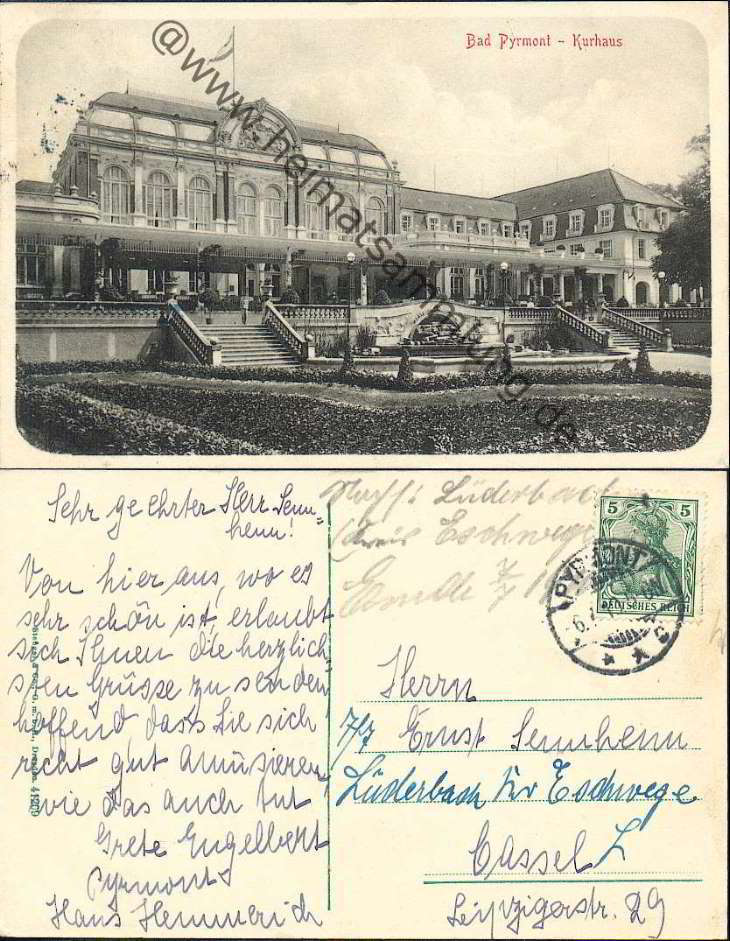 Bad Pyrmont - Kurhaus
@www.heimatsammlung.de
Sehr geehrter Herr Senn=
henn!
Von hier aus, wo es
sehr schön ist, erlaubt
sich Ihnen die herzlich=
sten Grüsse zu senden
hoffend dass Sie sich
recht gut amüsieren,
wie das auch tut
Grete Engelbert
Pyrmont
Hans Hemmerich
Lüderbach
Kreis Eschwege
5 5
DEUTSCHES REICH
PYRMONT
Herrn
Ernst Sennhenn
Lüderbach Kr Eschwege
Cassel
Leipzigerstr. 29